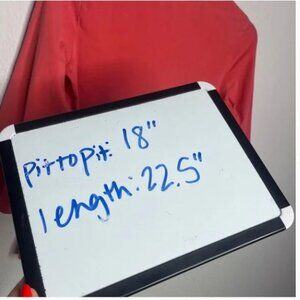 pit to pit: 18"
length: 22.5"